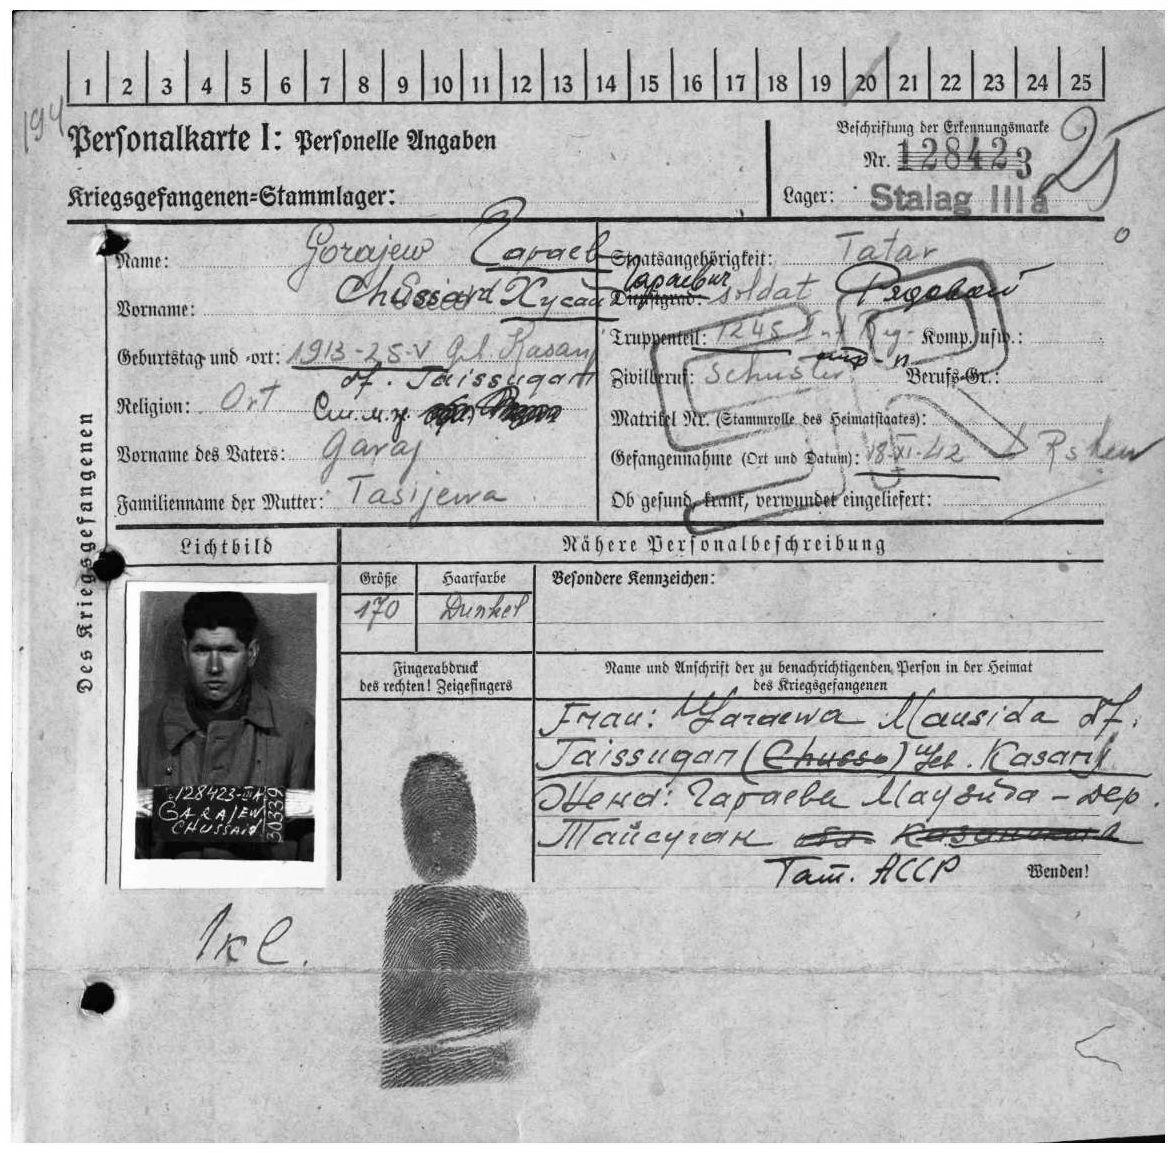 1 2 3 4 5 6 7 8 9 10 11 12 13 14 15 16 17 18 19 20 21 22 23 24 25
194
Personalkarte I: Personelle Angaben
Beschriftung der Erkennungsmarke
Nr. 128423
25
Kriegsgefangenen=Stammlager:
Lager: Stalag IIIa
Des Kriegsgefangenen
Name: Gorajew Гараев
Vorname: Chussaid Хусаи
Geburtstag und -ort: 1913-25-V Gb. Kasan
df. Taissugan
Religion: Ort
Vorname des Vaters: Garaj
Familienname der Mutter: Tasijewa
Staatsangehörigkeit: Tatar
Гараевич
Dienstgrad: soldat Рядовой
Truppenteil: 1245 Inf Reg. Komp. usw.:
Zivilberuf: Schuster Berufs-Gr.:
Matrikel Nr. (Stammrolle des Heimatstaates):
Gefangennahme (Ort und Datum): 18-XI-42 Rshew
Ob gesund, krank, verwundet eingeliefert:
Lichtbild
Nähere Personalbeschreibung
Größe Haarfarbe Besondere Kennzeichen:
170 Dunkel
Fingerabdruck
des rechten! Zeigefingers
Name und Anschrift der zu benachrichtigenden Person in der Heimat
des Kriegsgefangenen
Frau: Garaewa Mausida df.
Taissugan (Chusso) Geb. Kasan
Жена: Гараева Маузида - дер.
Тайсуган
Тат. АССР
Wenden!
128423-IIIA
GARAJEW
CHUSSAID
30339
1kl.